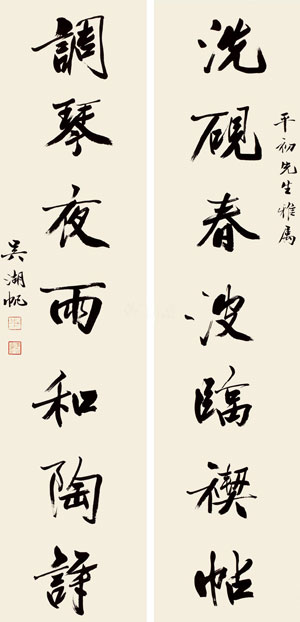 平初先生雅属
洗硯春波臨禊帖
調琴夜雨和陶詩
吳湖帆